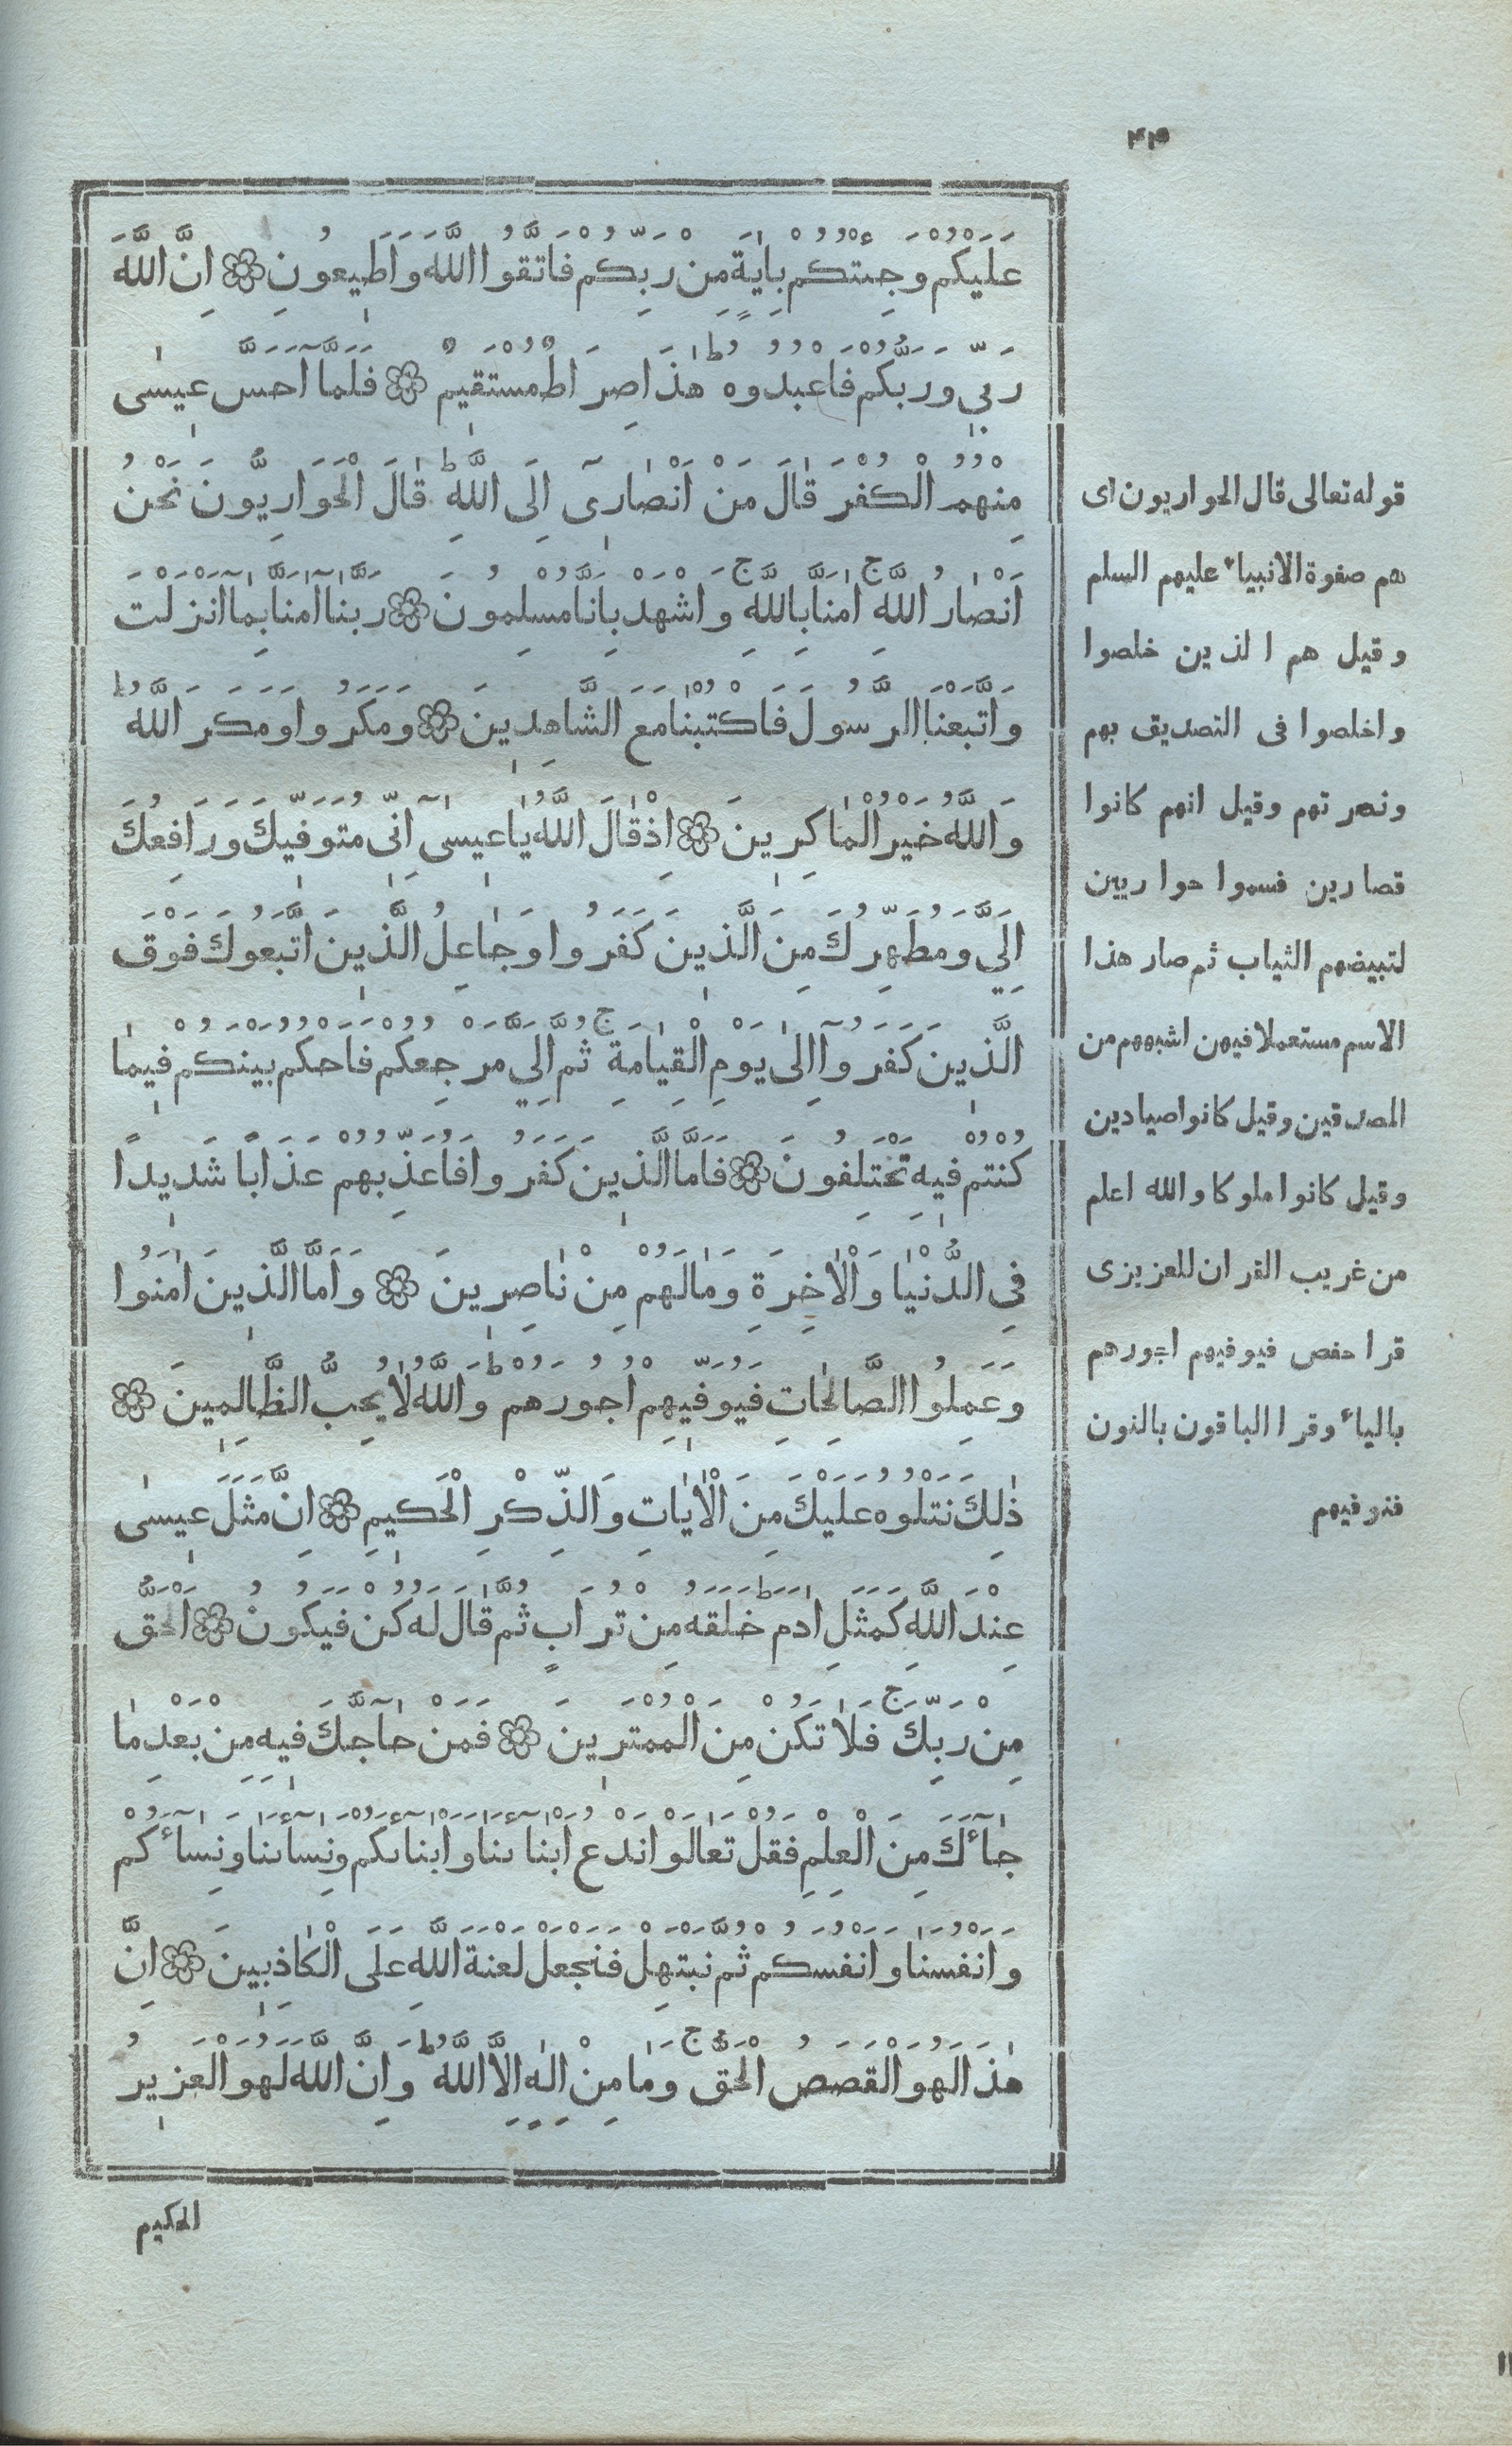 ٤٣
عَلَيْكُمْ وَجِئْتُكُمْ بِاٰيَةٍ مِنْ رَبِّكُمْ فَاتَّقُوا اللَّهَ وَاَطِيعُونِ ۞ اِنَّ اللَّهَ
رَبِّي وَرَبُّكُمْ فَاعْبُدُوهُ ط هٰذَا صِرَاطٌ مُسْتَقِيمٌ ۞ فَلَمَّآ اَحَسَّ عِيسٰى
مِنْهُمُ الْكُفْرَ قَالَ مَنْ اَنْصَارِىٓ اِلَى اللَّهِ ط قَالَ الْحَوَارِيُّونَ نَحْنُ
اَنْصَارُ اللَّهِ ج اٰمَنَّا بِاللَّهِ ج وَاشْهَدْ بِاَنَّا مُسْلِمُونَ ۞ رَبَّنَآ اٰمَنَّا بِمَآ اَنْزَلْتَ
وَاتَّبَعْنَا الرَّسُولَ فَاكْتُبْنَا مَعَ الشَّاهِدِينَ ۞ وَمَكَرُوا وَمَكَرَ اللَّهُ ط
وَاللَّهُ خَيْرُ الْمَاكِرِينَ ۞ اِذْ قَالَ اللَّهُ يَا عِيسَىٓ اِنِّى مُتَوَفِّيكَ وَرَافِعُكَ
اِلَيَّ وَمُطَهِّرُكَ مِنَ الَّذِينَ كَفَرُوا وَجَاعِلُ الَّذِينَ اتَّبَعُوكَ فَوْقَ
الَّذِينَ كَفَرُوآ اِلٰى يَوْمِ الْقِيَامَةِ ج ثُمَّ اِلَيَّ مَرْجِعُكُمْ فَاَحْكُمُ بَيْنَكُمْ فِيمَا
كُنْتُمْ فِيهِ تَخْتَلِفُونَ ۞ فَاَمَّا الَّذِينَ كَفَرُوا فَاُعَذِّبُهُمْ عَذَابًا شَدِيدًا
فِى الدُّنْيَا وَالْاٰخِرَةِ وَمَا لَهُمْ مِنْ نَاصِرِينَ ۞ وَاَمَّا الَّذِينَ اٰمَنُوا
وَعَمِلُوا الصَّالِحَاتِ فَيُوَفِّيهِمْ اُجُورَهُمْ ط وَاللَّهُ لَا يُحِبُّ الظَّالِمِينَ ۞
ذٰلِكَ نَتْلُوهُ عَلَيْكَ مِنَ الْاٰيَاتِ وَالذِّكْرِ الْحَكِيمِ ۞ اِنَّ مَثَلَ عِيسٰى
عِنْدَ اللَّهِ كَمَثَلِ اٰدَمَ ط خَلَقَهُ مِنْ تُرَابٍ ثُمَّ قَالَ لَهُ كُنْ فَيَكُونُ ۞ اَلْحَقُّ
مِنْ رَبِّكَ ج فَلَا تَكُنْ مِنَ الْمُمْتَرِينَ ۞ فَمَنْ حَآجَّكَ فِيهِ مِنْ بَعْدِ مَا
جَآءَكَ مِنَ الْعِلْمِ فَقُلْ تَعَالَوْا نَدْعُ اَبْنَآئَنَا وَاَبْنَآئَكُمْ وَنِسَآئَنَا وَنِسَآءَكُمْ
وَاَنْفُسَنَا وَاَنْفُسَكُمْ ثُمَّ نَبْتَهِلْ فَنَجْعَلْ لَعْنَةَ اللَّهِ عَلَى الْكَاذِبِينَ ۞ اِنَّ
هٰذَا لَهُوَ الْقَصَصُ الْحَقُّ ج وَمَا مِنْ اِلٰهٍ اِلَّا اللَّهُ ط وَاِنَّ اللَّهَ لَهُوَ الْعَزِيزُ
الحكيم
قوله تعالى قال الحواريون اى
هم صفوة الانبياء عليهم السلم
وقيل هم الذين خلصوا
واخلصوا فى التصديق بهم
ونصرتهم وقيل انهم كانوا
قصارين فسموا حواريين
لتبييضهم الثياب ثم صار هذا
الاسم مستعملا فيهن اشبههم من
المصدقين وقيل كانوا صيادين
وقيل كانوا ملوكا والله اعلم
من غريب القران للعزيزى
قرا حفص فيوفيهم اجورهم
بالياء وقرا الباقون بالنون
فنوفيهم